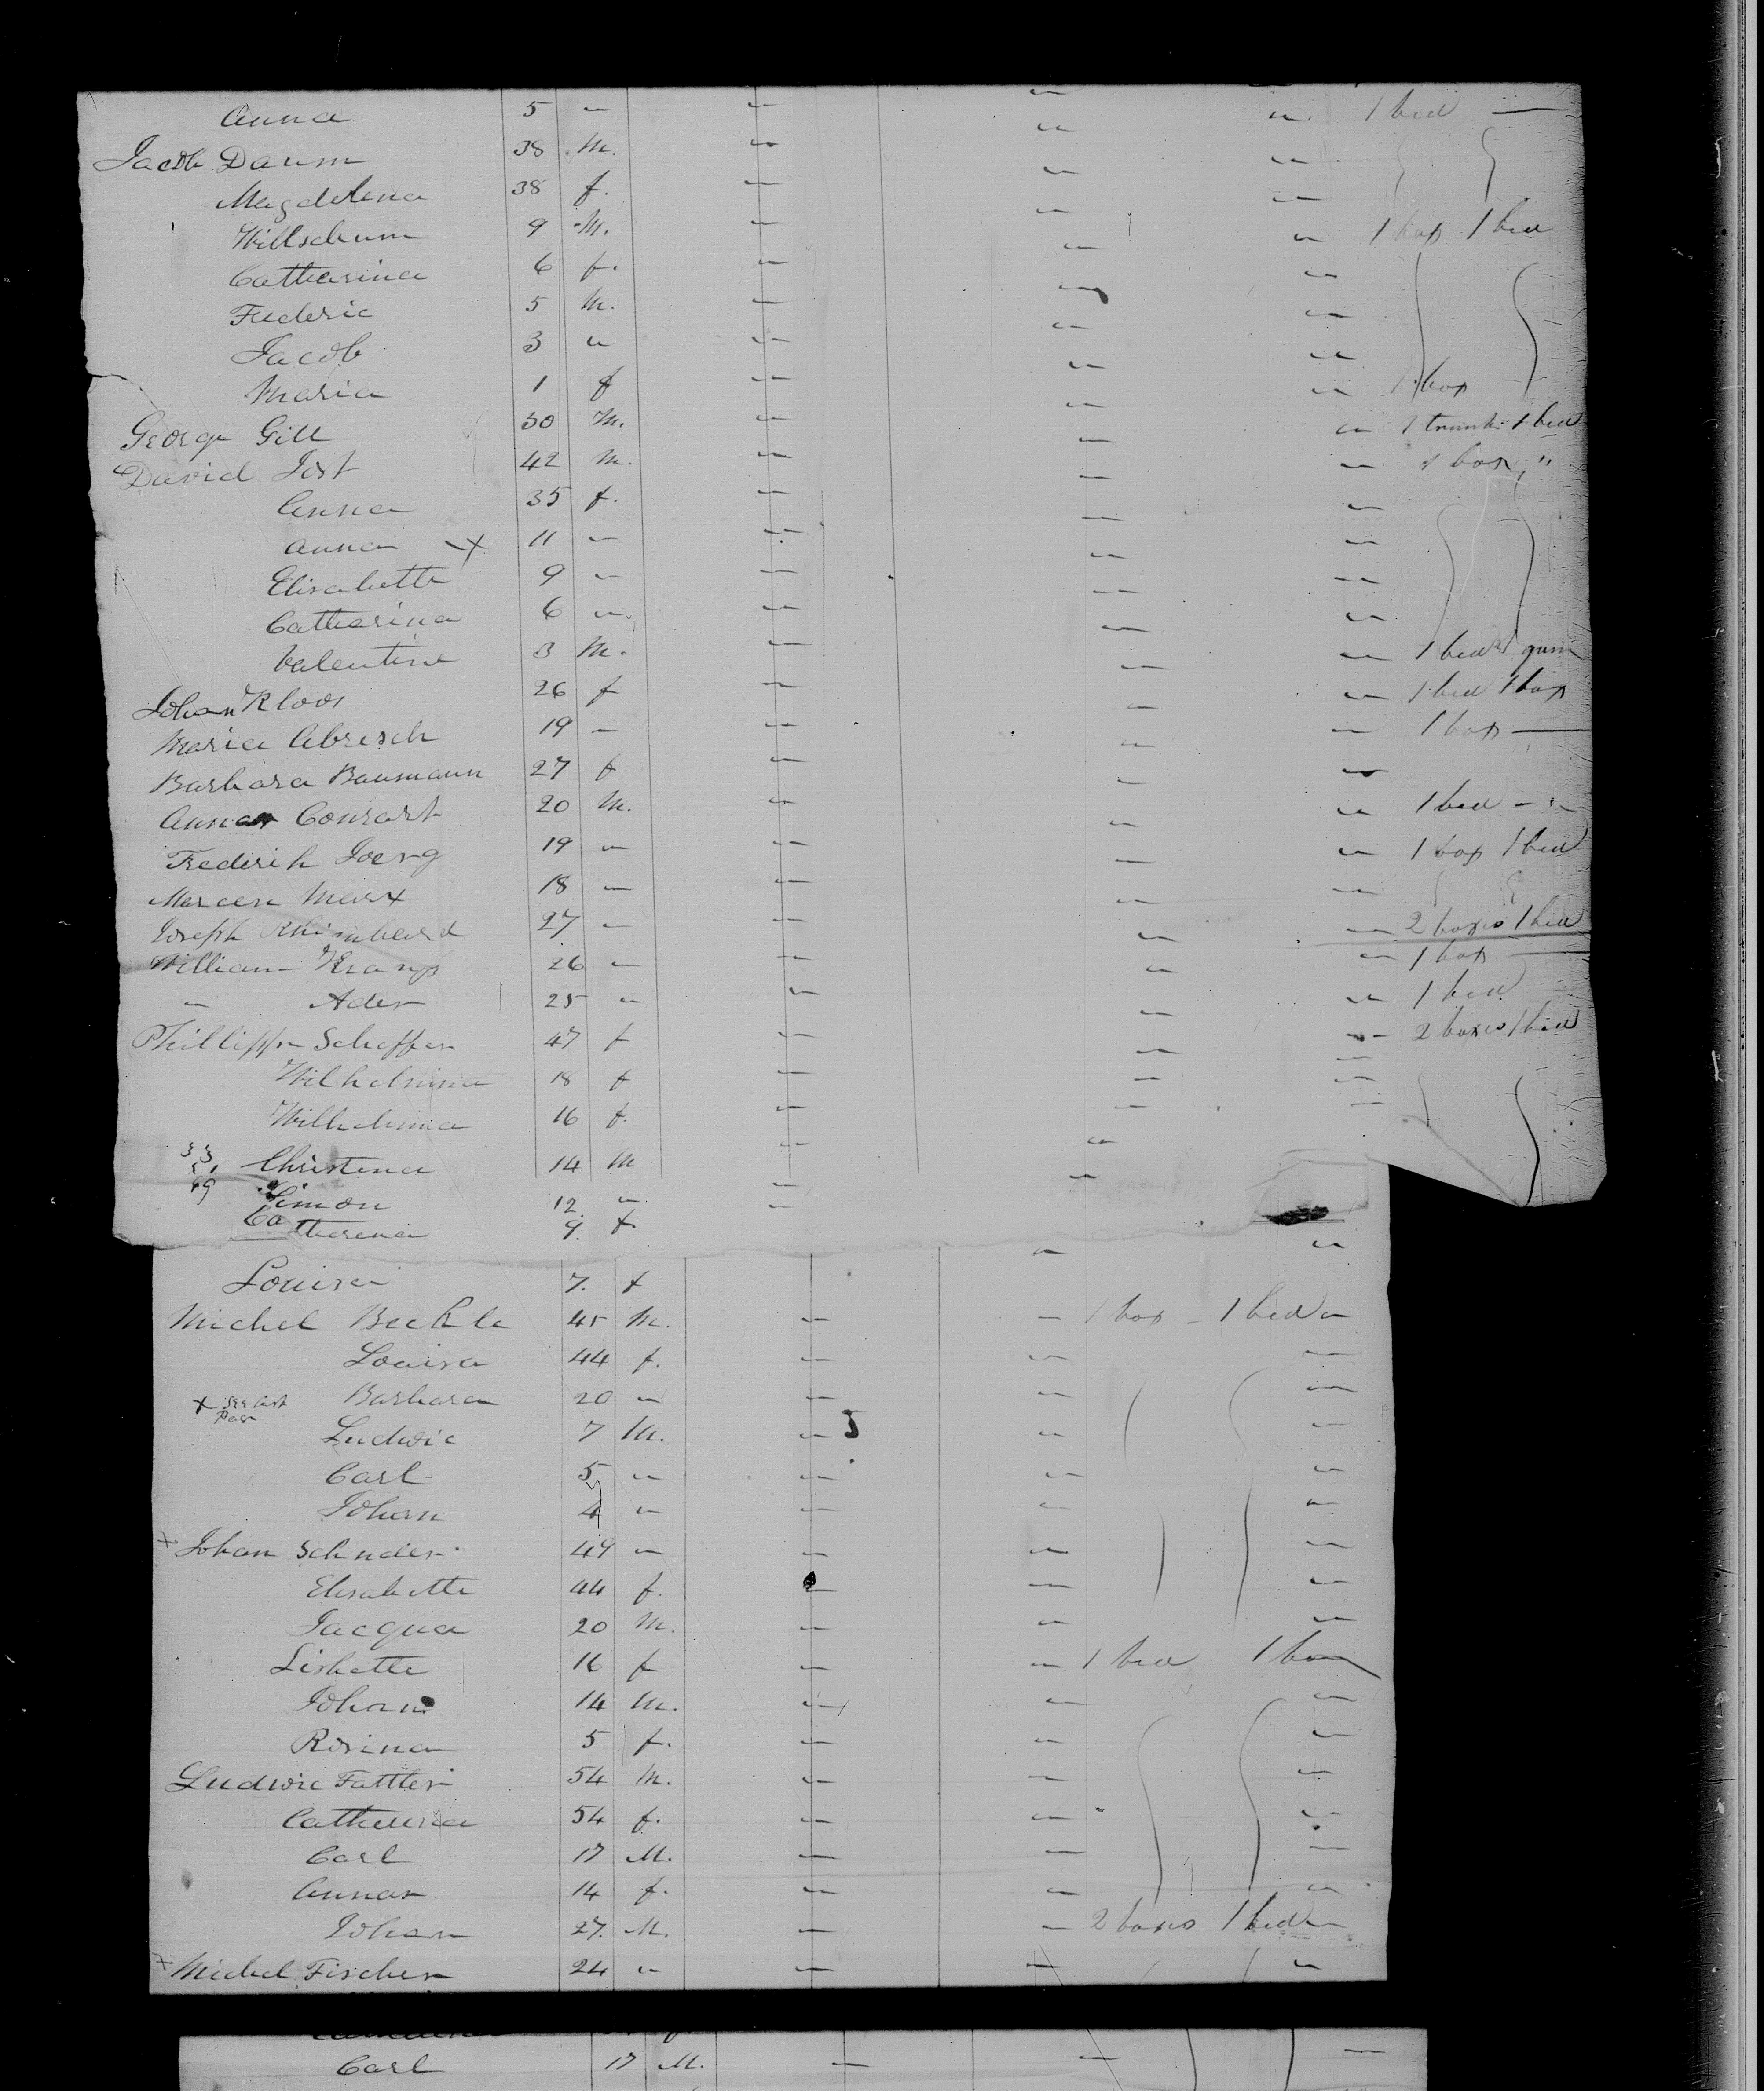 Anna 5 " " " " 1 bed —
Jacob Daum 38 M. " " "
Magdelena 38 f. " " "
Willschum 9 M. " " " 1 box 1 bed
Catharina 6 f. " " "
Frederic 5 M. " " "
Jacob 3 " " " "
Maria 1 f " " " 1 box
George Gill 30 M. " " " 1 trunk 1 bed
David Jost 42 M. " " " 1 box "
Anna 35 f. " " "
Anna x 11 " " " "
Elisabetth 9 " " " "
Catharina 6 " " " "
Valentine 3 M. " " " 1 bed
Johan Kloos 26 f " " " 1 bed 1 box
Maria Abresch 19 " " " " 1 box —
Barbara Baumann 27 f " " "
Anna Conrart 20 M. " " " 1 bed - " -
Frederik Joerg 19 " " " " 1 box 1 bed
Marx 18 " " " "
Joseph 27 " " " " 2 boxes 1 bed
William 26 " " " " 1 box —
" Ader 25 " " " " 1 bed
Phillippe Scheffer 47 f " " " 2 boxes 1 bed
Wilhelmina 18 f " " "
Wilhelmina 16 f. " " "
33, Christena 14 M " "
69 Simon 12. " " "
Catharina 9. f "
Louisa 7. f " "
Michel Beckle 45 M. " " 1 box - 1 bed "
Louisa 44 f. " " "
x Barbara 20 " " " "
Ludwic 7 M. " 5 " "
Carl 5 " " " "
Johan 4 " " " "
x Johan Schnder 49 " " " "
Elisabette 44 f. " " "
Jacqua 20 M. " " "
Lisbette 16 f " " 1 bed 1 box
Johan 14 M. " " "
Rosina 5 f. " " "
Ludwic Fattler 54 M. " " "
Catherina 54 f. " " "
Carl 17 M. " " "
Anna 14 f. " " "
Johan 27. M. " " 2 boxes 1 bed "
x Michel Fischer 24 " " " "
Carl 17 M. — — —